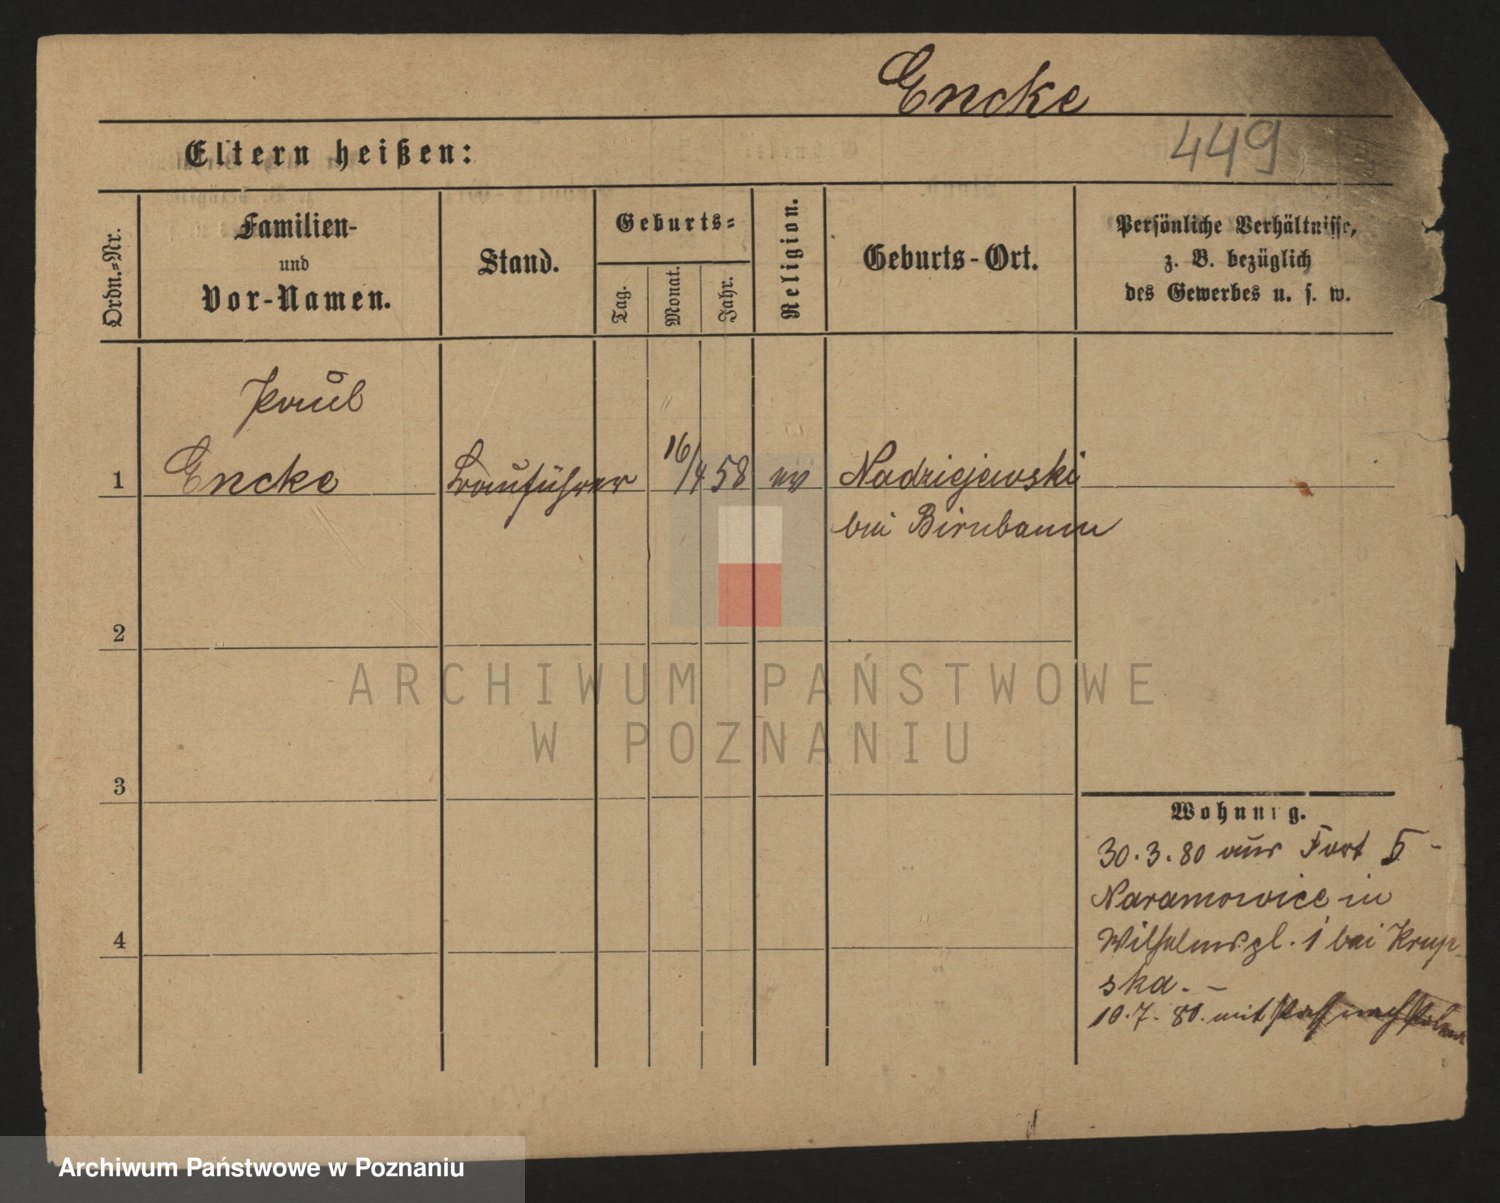 Encke
449
Eltern heißen:
Ordn.=Nr.
Familien-
und
Vor-Namen.
Stand.
Geburts=
Tag.
Monat.
Jahr.
Religion.
Geburts-Ort.
Persönliche Verhältnisse,
z. B. bezüglich
des Gewerbes u. s. w.
Paul
1 Encke Bauführer 16/4 58 ev Nadziejewski
bei Birnbaum
2
3
4
Wohnung.
30.3.80 aus Fort V -
Naramowice in
Wilhelmspl. 1 bei Krup
ska. -
10.7.80. mit Paß nach
ARCHIWUM PAŃSTWOWE
W POZNANIU
Archiwum Państwowe w Poznaniu